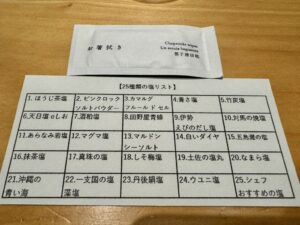 お箸拭き
Chopsticks wipes
【25種類の塩リスト】
1. ほうじ茶塩
2. ピンクロックソルトパウダー
3. カマルグ フルール ド セル
4. 藻さ塩
5. 竹炭塩
6. 天日塩
7. 酒粕塩
8. 田野屋青蜂
9. 伊勢えびのだし塩
10. 対馬の焼塩
11. あらなみ岩塩
12. マグマ塩
13. マルドンシーソルト
14. 白いダイヤ
15. 五島灘の塩
16. 抹茶塩
17. 真珠の塩
18. しそ梅塩
19. 土佐の塩丸
20. なまら塩
21. 沖縄の青い海
22. 一支国の塩 藻塩
23. 丹後網塩
24. ウユニ塩
25. シェフおすすめの塩